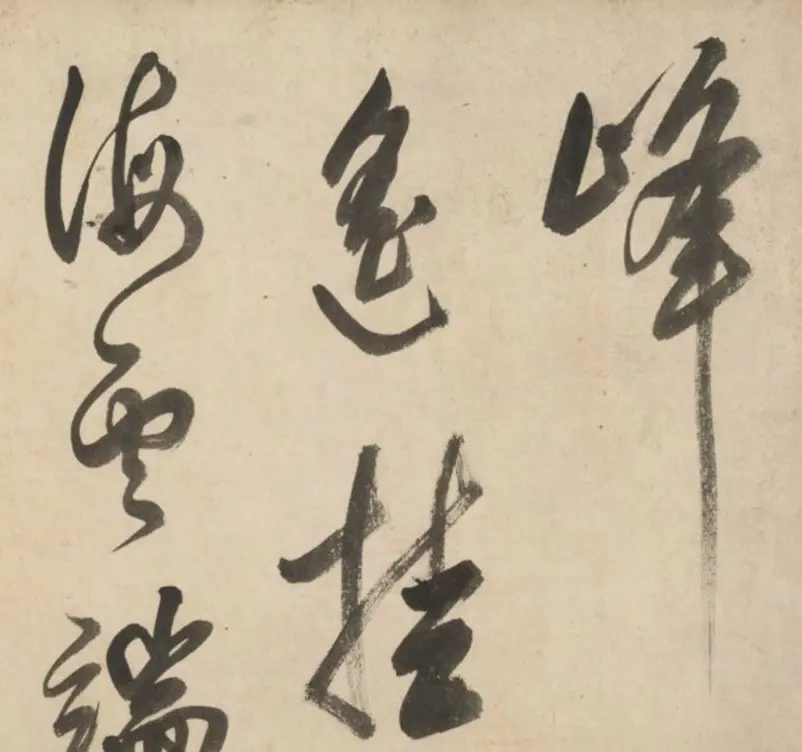 峰
遥挂
海云端